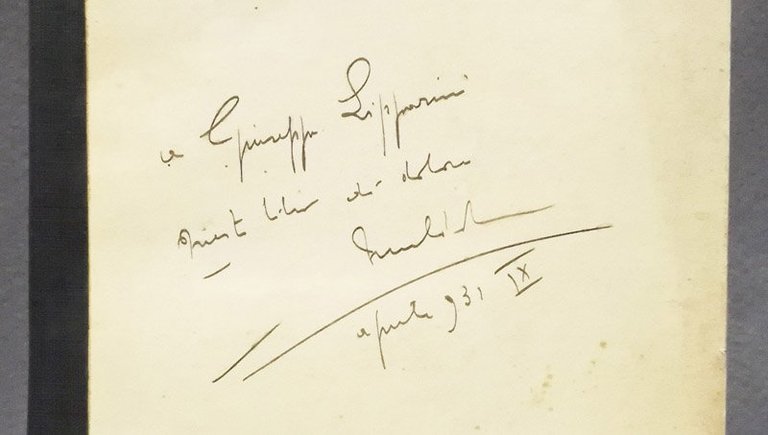 a Giuseppe Lipparini
questo libro di dolore
aprile 931 IX